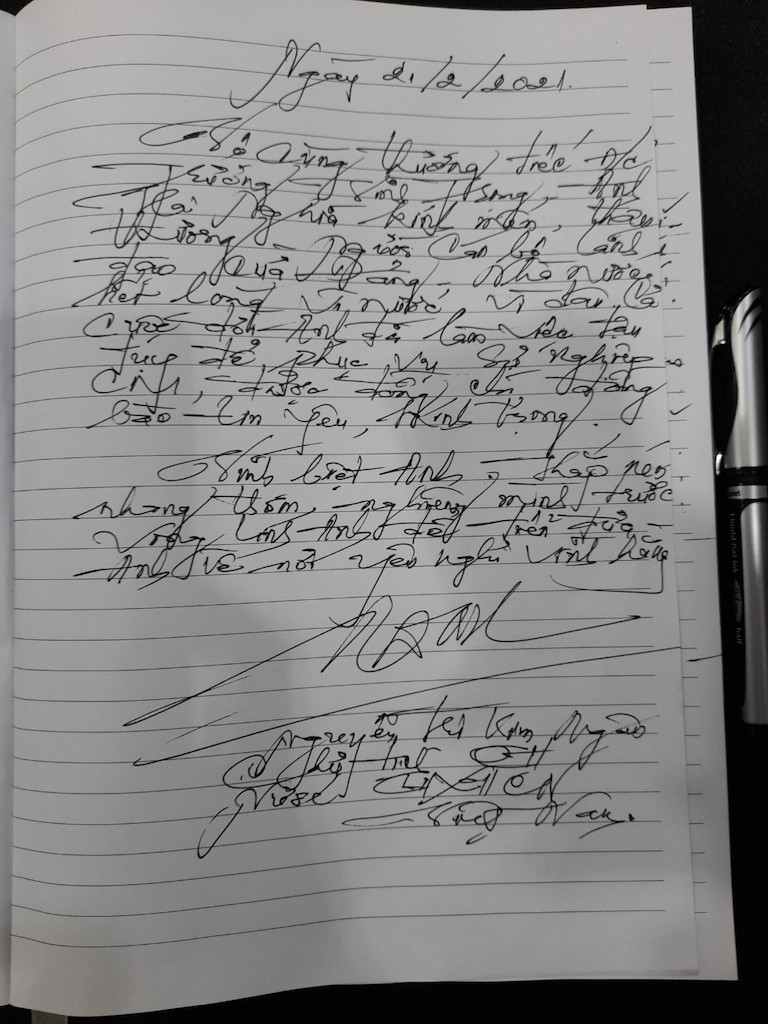 Ngày 21/2/2021.
Vô cùng thương tiếc đ/c
Trương Vĩnh Trọng, Anh
Hai Nghĩa kính mến, thân
thương. Người cán bộ lãnh
đạo của Đảng, Nhà nước,
hết lòng vì nước vì dân. Cả
cuộc đời Anh đã làm việc tận
tụy để phục vụ sự nghiệp
CM, được đồng chí đồng
bào tin yêu, kính trọng.
Vĩnh biệt Anh, thắp nén
nhang thơm, nghiêng mình trước
vong linh Anh để tiễn đưa
Anh về nơi yên nghỉ vĩnh hằng
Ngân
Nguyễn Thị Kim Ngân
Chủ tịch QH
Nước CHXHCN
Việt Nam.